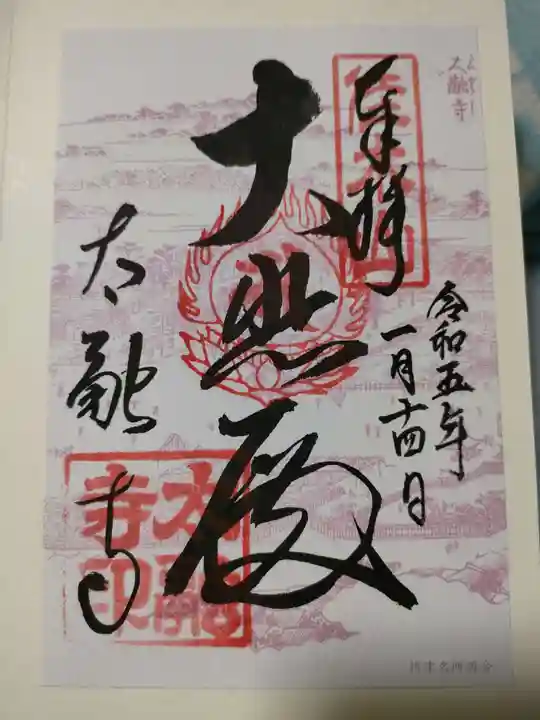 奉拝
令和五年
一月十四日
大悲殿
太融寺
太融寺印
太融寺